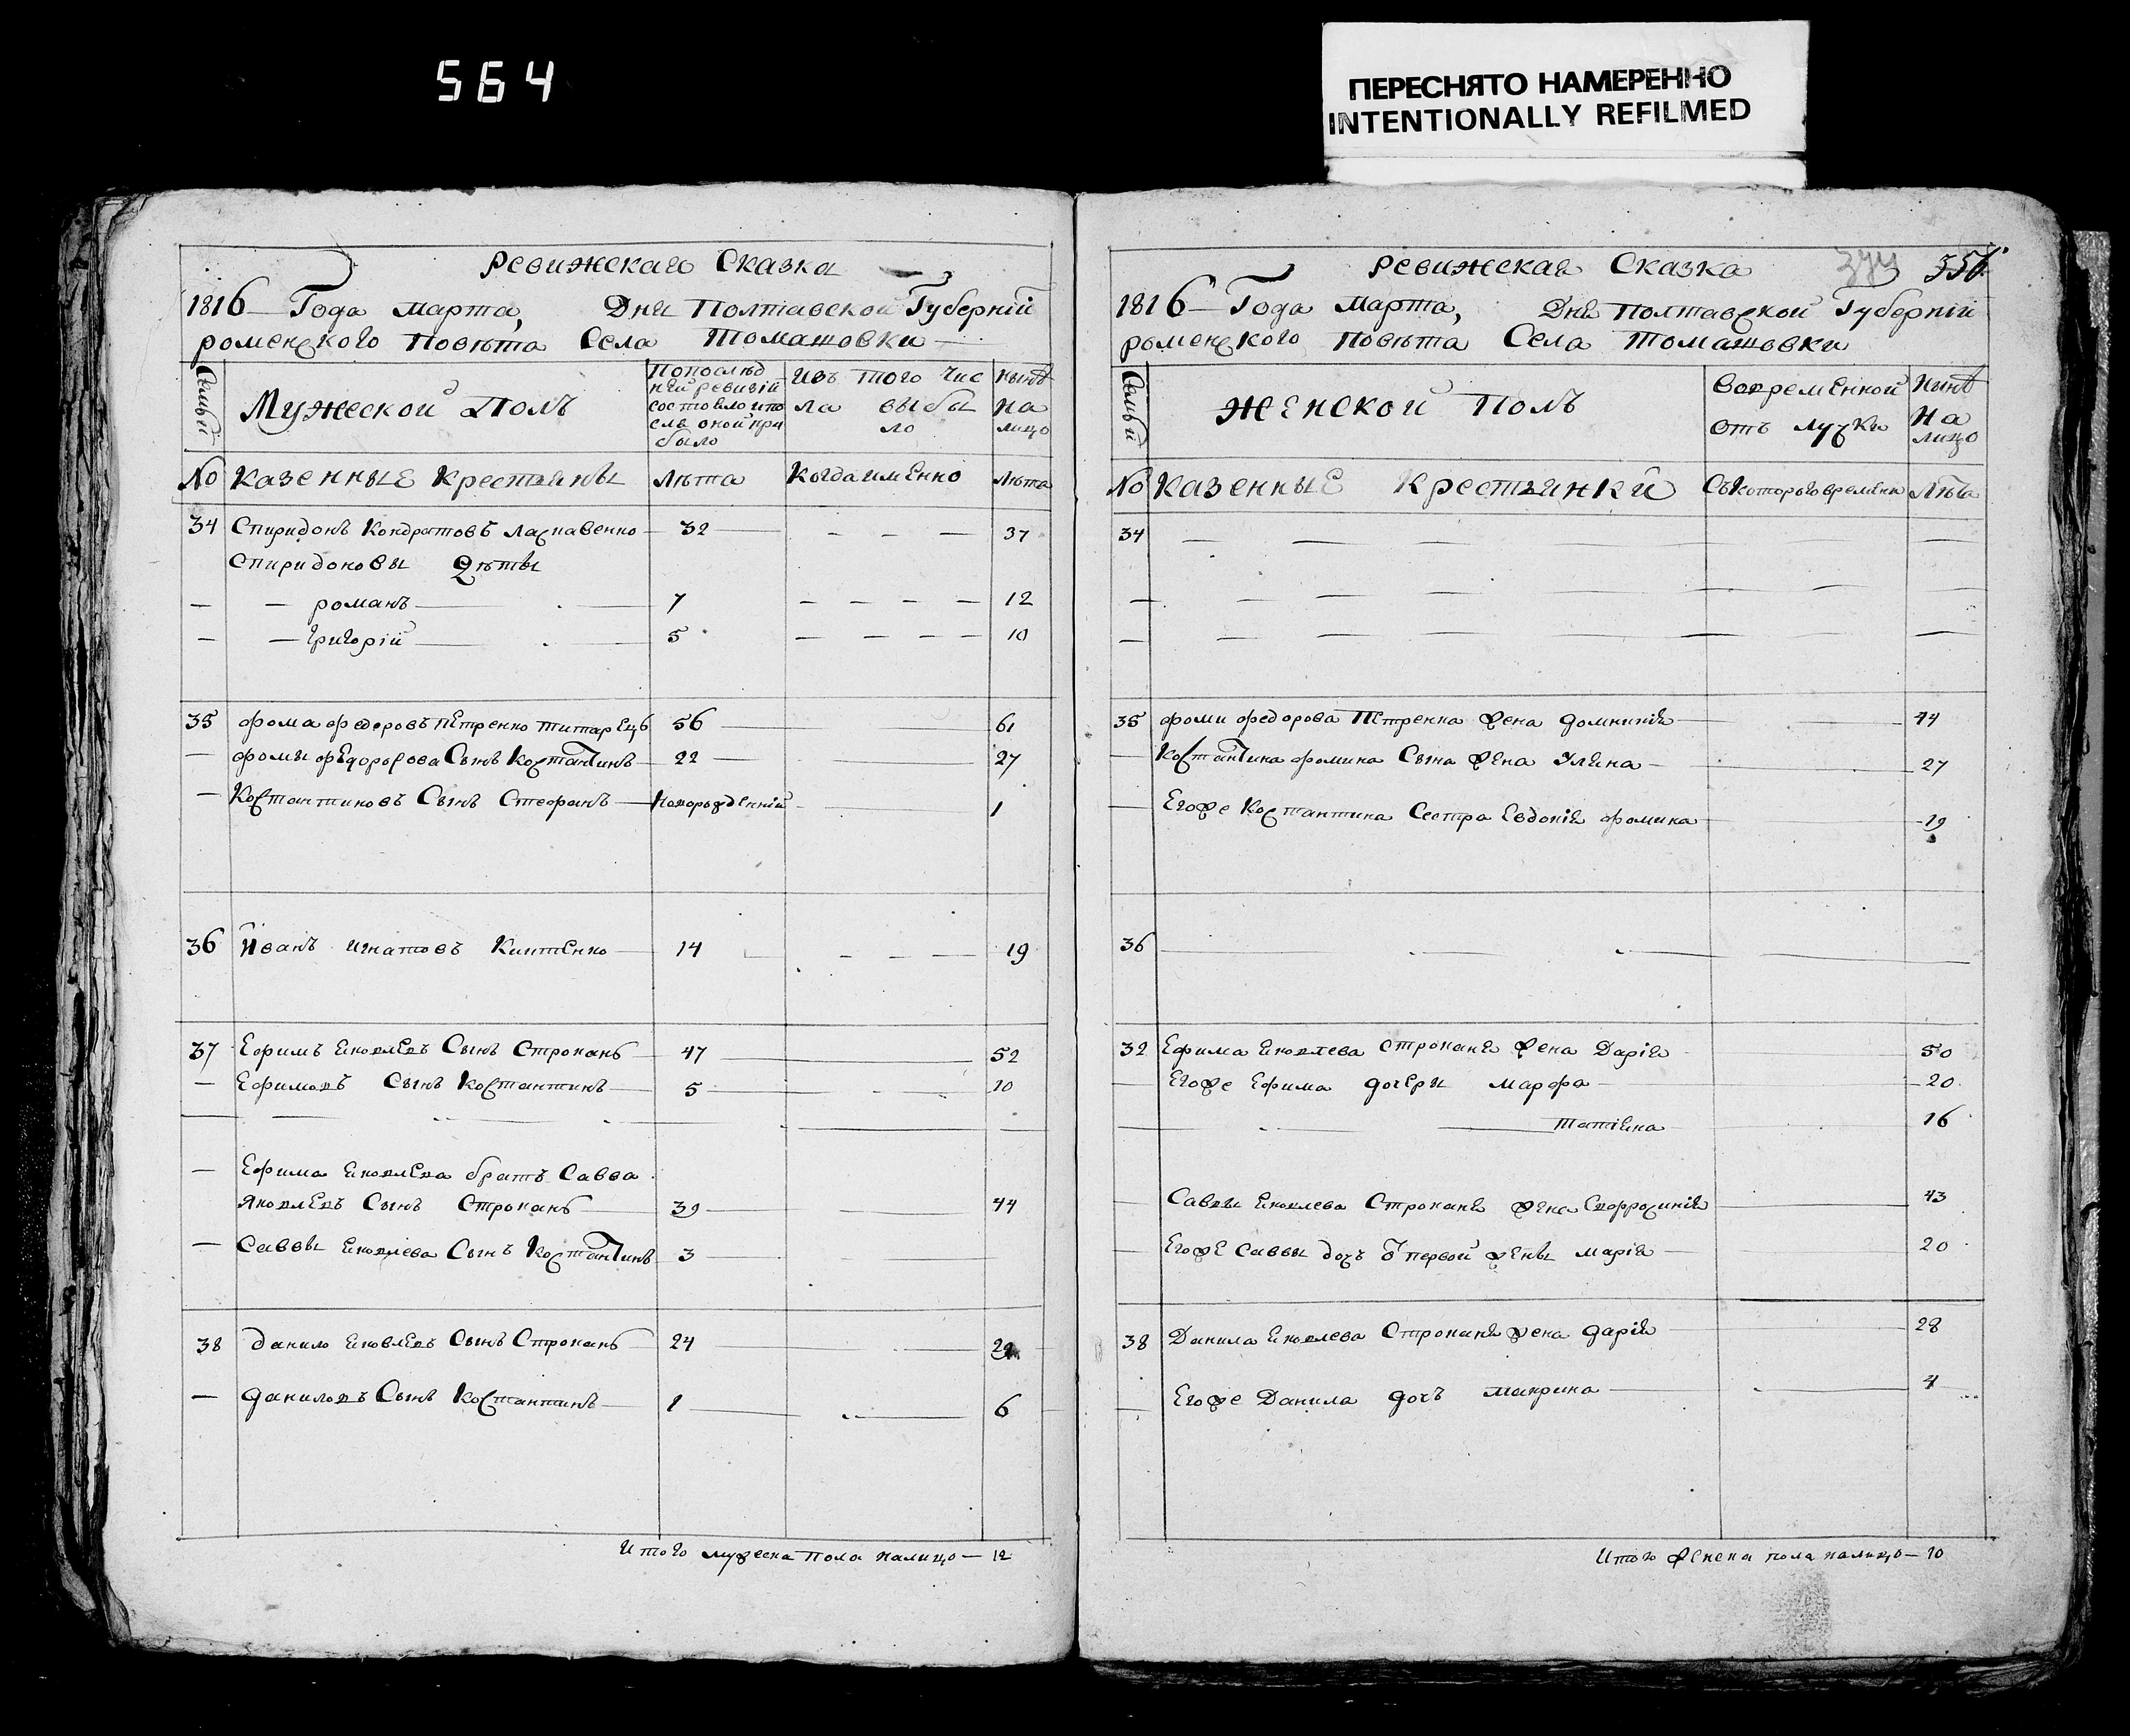 564
ПЕРЕСНЯТО НАМЕРЕННО
INTENTIONALLY REFILMED
Ревижская Сказка
1816 Года марта, Дня Полтавской Губерніи
роменского Повѣта Села Томашовки
Семьи
Мужеской Полъ
По послѣд
ней ревизіи
состояло и по
слѣ оной при
было
Изъ того чис
ла выбы
ло
Нынѣ
на
лицо
No Казенные Крестьяны Лѣта Когда именно Лѣта
34 Спиридонъ Кондратовъ 32 37
Спиридоновы Дѣты
романъ 7 12
Григорій 5 10
35 фома федоровъ пЕтренко 56 61
фомы федорова Сынъ Костантинъ 22 27
Костантиновъ Сынъ Стефанъ Новорожденній 1
36 Иванъ игнатовъ Кнтенко 14 19
37 Ефимъ Яковлевъ Сынъ Строкань 47 52
Ефимовъ Сынъ Костантинъ 5 10
Ефима Яковлева братъ Савва
Яковлевъ Сынъ Строкань 39 44
Саввы Яковлева Сынъ Костантинъ 3
38 данило Яковлевъ Сынъ Строкань 24 29
даниловъ Сынъ Костантинъ 1 6
Итого мужеска пола налицо — 12
Ревижская Сказка 356
1816 Года марта, Дня Полтавской Губерніи
роменского Повѣта Села Томашовки
Семьи
Женской Полъ
Во временной
отъ лучки
Нынѣ
На
лицо
No Казенные Крестьянки Съ которого времени Лѣта
34
35 фоми федорова Петренка жена домникія 44
Костантина фомина Сына жена Уляна 27
Егоже Костантина Сестра Евдокія фомина 19
36
32 Ефима Яковлева Строканя жена Дарія 50
Егоже Ефима дочеры марфа 20
татіяна 16
Саввы Яковлева Строканя жена Евфросинія 43
Егоже Саввы дочъ ѿ первой жены марія 20
38 Данила Яковлева Строканя жена дарія 28
Егоже Данила дочъ макрина 4
Итого женска пола налицо — 10